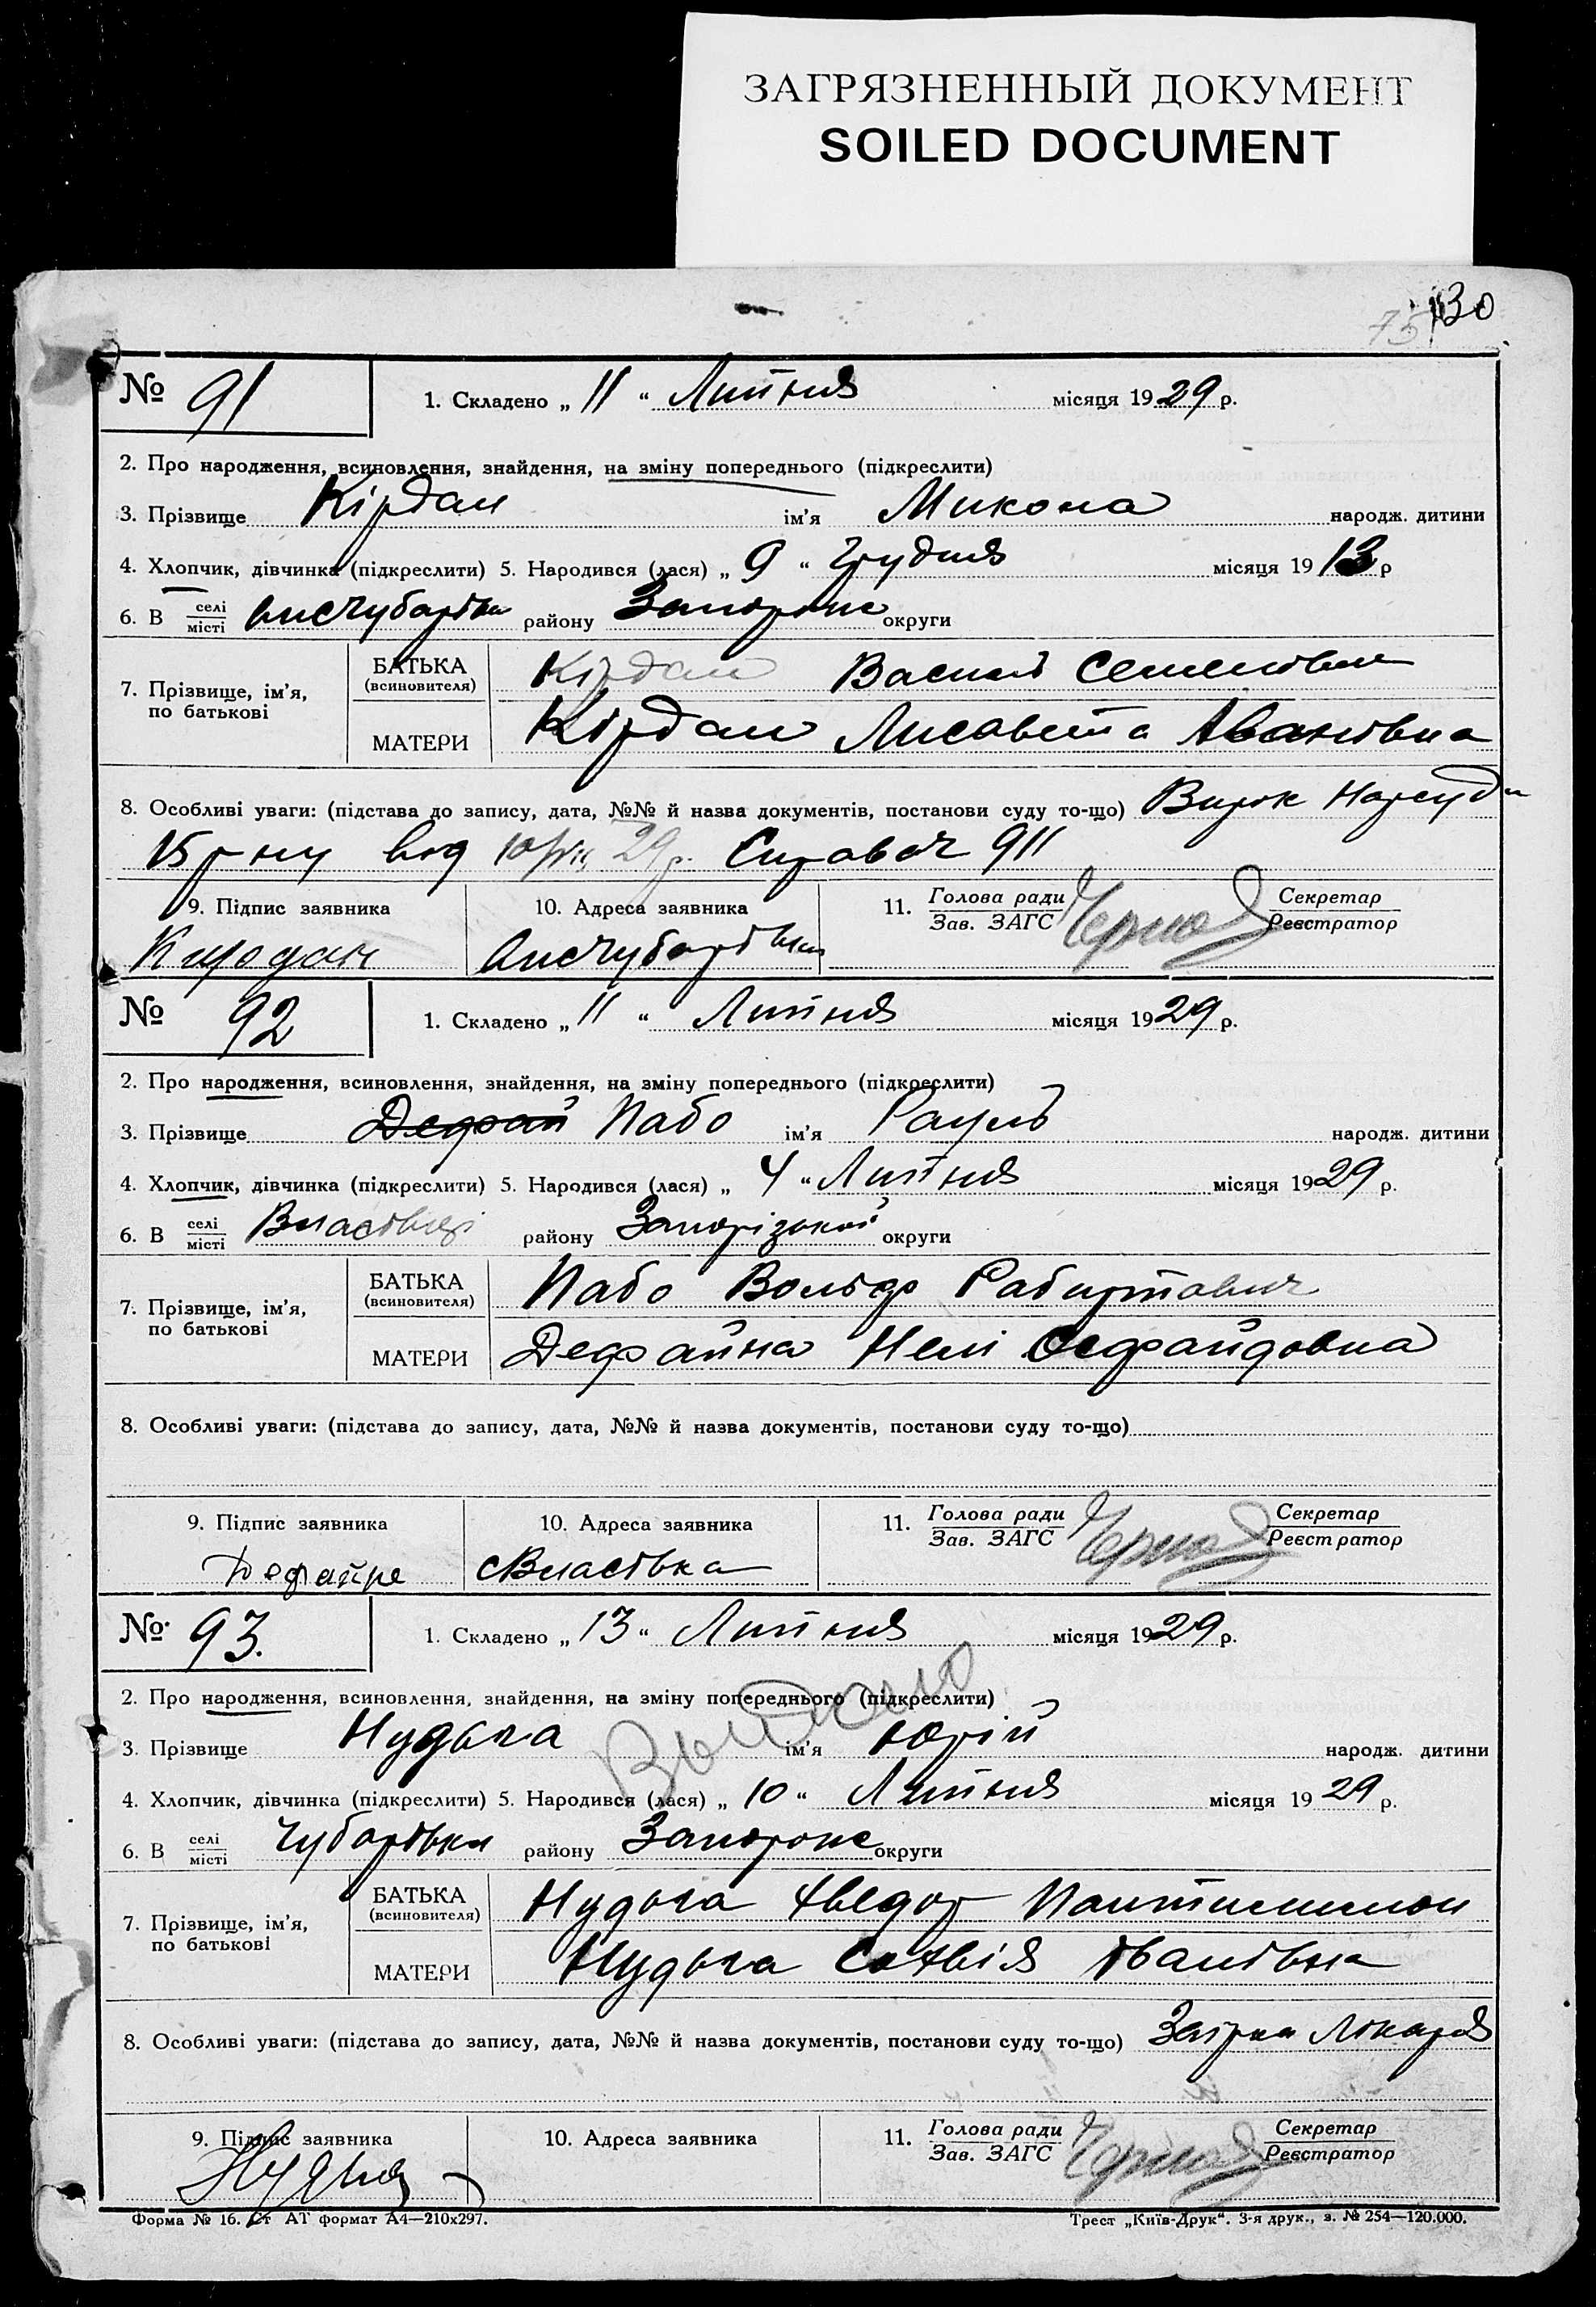 ЗАГРЯЗНЕННЫЙ ДОКУМЕНТ
SOILED DOCUMENT
75 130
№ 91 1. Складено „ 11 “ Липня місяця 1929 р.
2. Про народження, всиновлення, знайдення, на зміну попереднього (підкреслити)
3. Прізвище Кірдан ім'я Микола народж. дитини
4. Хлопчик, дівчинка (підкреслити) 5. Народився (лася) „ 9 “ Грудня місяця 1913 р
6. В селі місті району Запоріж округи
7. Прізвище, ім'я, по батькові
БАТЬКА (всиновителя) Кірдан Василь Семенович
МАТЕРИ Кірдан Лисавета Івановна
8. Особливі уваги: (підстава до запису, дата, №№ й назва документів, постанови суду то-що) Вирок Нарсуда
від 29 р. 911
9. Підпис заявника 10. Адреса заявника 11. Голова ради Зав. ЗАГС Секретар Реєстратор
Кирдан
№ 92 1. Складено „ 11 “ Липня місяця 1929 р.
2. Про народження, всиновлення, знайдення, на зміну попереднього (підкреслити)
3. Прізвище Дефай Пабо ім'я Рауль народж. дитини
4. Хлопчик, дівчинка (підкреслити) 5. Народився (лася) „ 4 “ Липня місяця 1929 р.
6. В селі місті Властівці району Запорізької округи
7. Прізвище, ім'я, по батькові
БАТЬКА (всиновителя) Пабо Вольф Рабиртович
МАТЕРИ Дефайна Нелі
8. Особливі уваги: (підстава до запису, дата, №№ й назва документів, постанови суду то-що)
9. Підпис заявника 10. Адреса заявника 11. Голова ради Зав. ЗАГС Секретар Реєстратор
Дефайре с Властвка
№ 93. 1. Складено „ 13 “ Липня місяця 1929 р.
2. Про народження, всиновлення, знайдення, на зміну попереднього (підкреслити)
3. Прізвище Нудьга ім'я Юрій народж. дитини
4. Хлопчик, дівчинка (підкреслити) 5. Народився (лася) „ 10 “ Липня місяця 1929 р.
6. В селі місті Чубарівка району Запоріж округи
7. Прізвище, ім'я, по батькові
БАТЬКА (всиновителя) Нудьга Федор
МАТЕРИ Нудьга Софія Іванівна
8. Особливі уваги: (підстава до запису, дата, №№ й назва документів, постанови суду то-що) Лікаря
9. Підпис заявника 10. Адреса заявника 11. Голова ради Зав. ЗАГС Секретар Реєстратор
Форма № 16. Ст АТ формат А4—210x297. Трест „Київ-Друк“. 3-я друк., з. № 254—120.000.